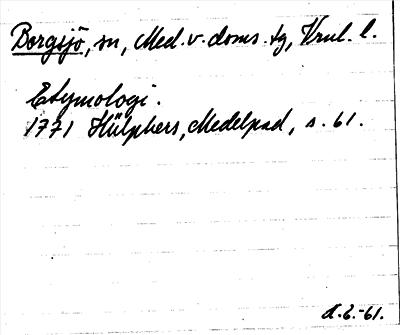 Borgsjö, sn, Med. v. doms. tg, Vnrl. l.
Etymologi.
1771 Hülphers, Medelpad, s. 61.
d. 6. -61.